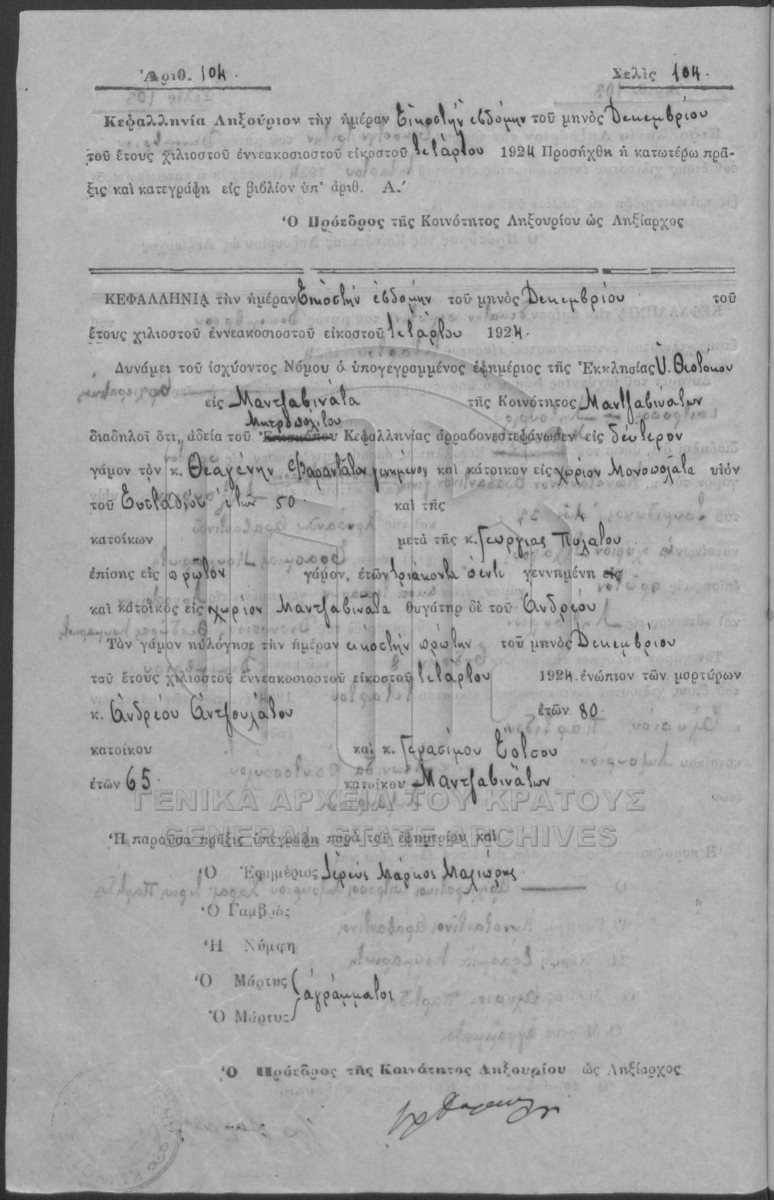 Ἀριθ. 104. Σελὶς 104.
Κεφαλληνία Ληξούριον τὴν ἡμέραν Εἰκοστὴν ἑβδόμην τοῦ μηνὸς Δεκεμβρίου
τοῦ ἔτους χιλιοστοῦ ἐννεακοσιοστοῦ εἰκοστοῦ τετάρτου 1924 Προσήχθη ἡ κατωτέρω πρᾶ-
ξις καὶ κατεγράφη εἰς βιβλίον ὑπ' ἀριθ. Α.'
Ὁ Πρόεδρος τῆς Κοινότητος Ληξουρίου ὡς Ληξίαρχος
ΚΕΦΑΛΛΗΝΙΑ τὴν ἡμέραν Εἰκοστὴν ἑβδόμην τοῦ μηνὸς Δεκεμβρίου τοῦ
ἔτους χιλιοστοῦ ἐννεακοσιοστοῦ εἰκοστοῦ τετάρτου 1924.
Δυνάμει τοῦ ἰσχύοντος Νόμου ὁ ὑπογεγραμμένος ἐφημέριος τῆς Ἐκκλησίας Ὑ. Θεοτόκου
εἰς Μαντζαβινᾶτα τῆς Κοινότητος Μαντζαβινάτων
Μητροπολίτου
διαδηλοῖ ὅτι, ἀδείᾳ τοῦ Ἐπισκόπου Κεφαλληνίας ἀρραβονεστεφάνωσεν εἰς δεύτερον
γάμον τὸν κ. Θεαγένην Φαραντᾶτον γεννημένος καὶ κάτοικον εἰς χωρίον Μονοπολᾶτα υἱὸν
τοῦ Εὐσταθίου ἐτῶν 50 καὶ τῆς
κατοίκων μετὰ τῆς κ. Γεωργίας Πυλάτου
ἐπίσης εἰς πρῶτον γάμον, ἐτῶν τριάκοντα πέντε γεννημένη εἰς
καὶ κάτοικος εἰς χωρίον Μαντζαβινᾶτα θυγάτηρ δὲ τοῦ Ἀνδρέου
Τὸν γάμον ηὐλόγησε τὴν ἡμέραν εἰκοστὴν πρώτην τοῦ μηνὸς Δεκεμβρίου
τοῦ ἔτους χιλιοστοῦ ἐννεακοσιοστοῦ εἰκοστοῦ τετάρτου 1924. ἐνώπιον τῶν μαρτύρων
κ. Ἀνδρέου Ἀντζουλάτου ἐτῶν 80
κατοίκου καὶ κ. Γερασίμου
ἐτῶν 65 κατοίκου Μαντζαβινάτων
ΓΕΝΙΚΑ ΑΡΧΕΙΑ ΤΟΥ ΚΡΑΤΟΥΣ
GENERAL STATE ARCHIVES
Ἡ παροῦσα πρᾶξις ὑπεγράφη παρὰ τοῦ ἐφημερίου καὶ
Ὁ Ἐφημέριος Ἱερεὺς Μάρκος Μαλιώρης
Ὁ Γαμβρὸς
Ἡ Νύμφη
Ὁ Μάρτυς
ἀγράμματοι
Ὁ Μάρτυς
Ὁ Πρόεδρος τῆς Κοινότητος Ληξουρίου ὡς Ληξίαρχος